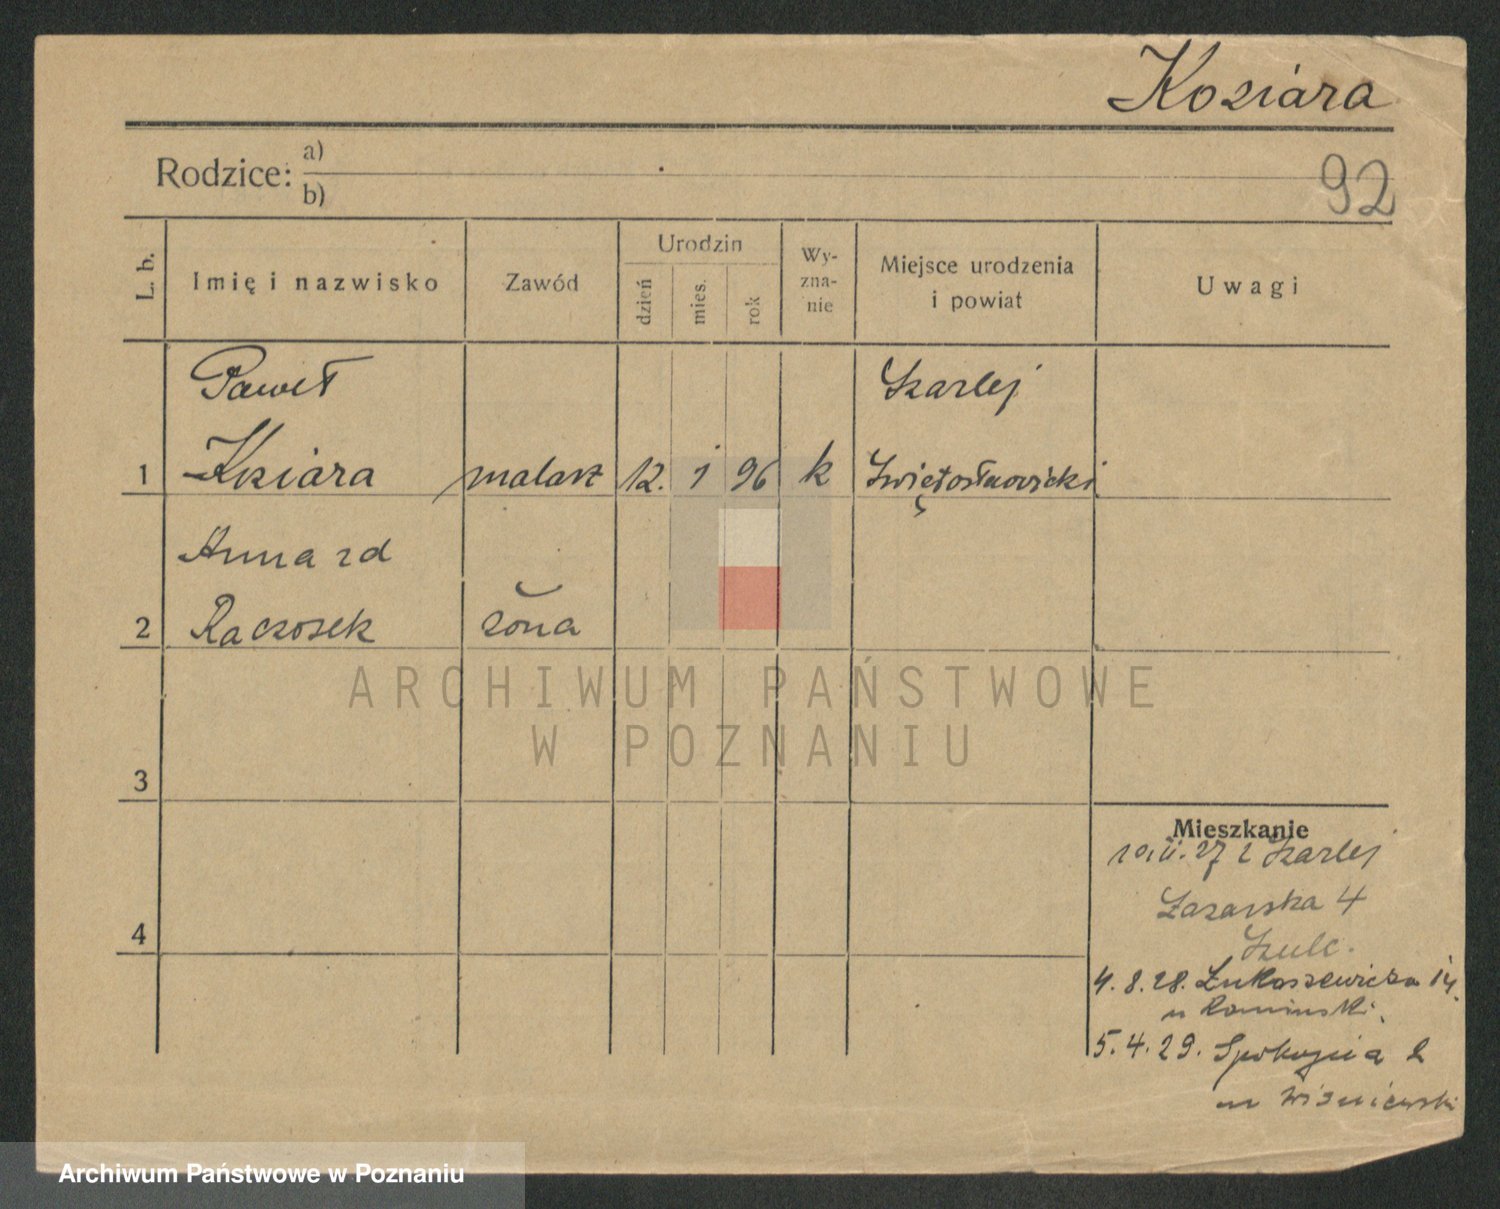 Koziara
Rodzice: a)
b)
92
L. b.
Imię i nazwisko
Zawód
Urodzin
dzień
mies.
rok
Wy-
zna-
nie
Miejsce urodzenia
i powiat
Uwagi
Paweł
Szarlej
1 Koziara malarz 12. 1 96 k Świętosłowicki
Anna zd
2 Raczosek żona
3
Mieszkanie
27 z Szarlej
4
Łazarska 4
Szulc.
4.8.28. Łukaszewicza 14.
u Kaminski.
5.4.29. Spokojna 2
u Wiśniewski
ARCHIWUM PAŃSTWOWE
W POZNANIU
Archiwum Państwowe w Poznaniu